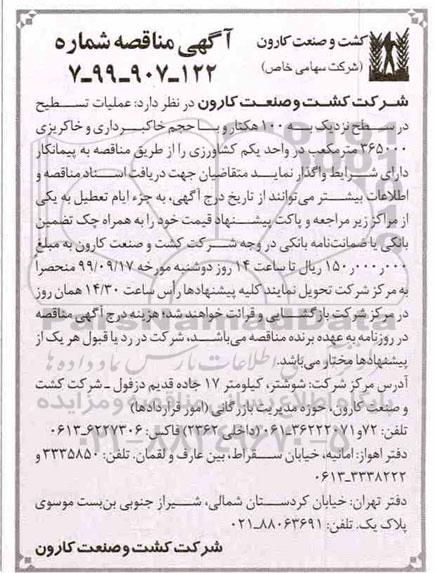 کشت و صنعت کارون
(شرکت سهامی خاص)
آگهی مناقصه شماره
۷-۹۹-۹۰۷-۱۲۲
شرکت کشت و صنعت کارون در نظر دارد: عملیات تسطیح
در سطح نزدیک به ۱۰۰ هکتار و با حجم خاکبرداری و خاکریزی
۳۶۵۰۰۰ مترمکعب در واحد یکم کشاورزی را از طریق مناقصه به پیمانکار
دارای شرایط واگذار نماید متقاضیان جهت دریافت اسناد مناقصه و
اطلاعات بیشتر می‌توانند از تاریخ درج آگهی، به جزء ایام تعطیل به یکی
از مراکز زیر مراجعه و پاکت پیشنهاد قیمت خود را به همراه چک تضمین
بانکی یا ضمانت‌نامه بانکی در وجه شرکت کشت و صنعت کارون به مبلغ
۱۵۰,۰۰۰,۰۰۰ ریال تا ساعت ۱۴ روز دوشنبه مورخه ۹۹/۰۹/۱۷ منحصرا
به مرکز شرکت تحویل نمایند کلیه پیشنهادها رأس ساعت ۱۴/۳۰ همان روز
در مرکز شرکت بازگشایی و قرائت خواهند شد؛ هزینه درج آگهی مناقصه
در روزنامه به عهده برنده مناقصه می‌باشد، شرکت در رد یا قبول هر یک از
پیشنهادها مختار می‌باشد.
آدرس مرکز شرکت: شوشتر، کیلومتر ۱۷ جاده قدیم دزفول - شرکت کشت
و صنعت کارون، حوزه مدیریت بازرگانی (امور قراردادها)
تلفن: ۷۲ و ۰۶۱-۳۶۲۲۲۰۷۱ (داخلی ۲۳۶۲) فاکس: ۰۶۱۳-۶۲۲۷۳۰۶
دفتر اهواز: امانیه، خیابان سقراط، بین عارف و لقمان. تلفن: ۳۳۳۵۸۵۰ و
۰۶۱۳-۳۳۳۸۲۲۲
دفتر تهران: خیابان کردستان شمالی، شیراز جنوبی بن‌بست موسوی
پلاک یک. تلفن: ۰۲۱-۸۸۰۶۳۶۹۱
شرکت کشت و صنعت کارون
ParsNamadData
۰۲۱-۸۸۳۴۹۶۷۰-۵